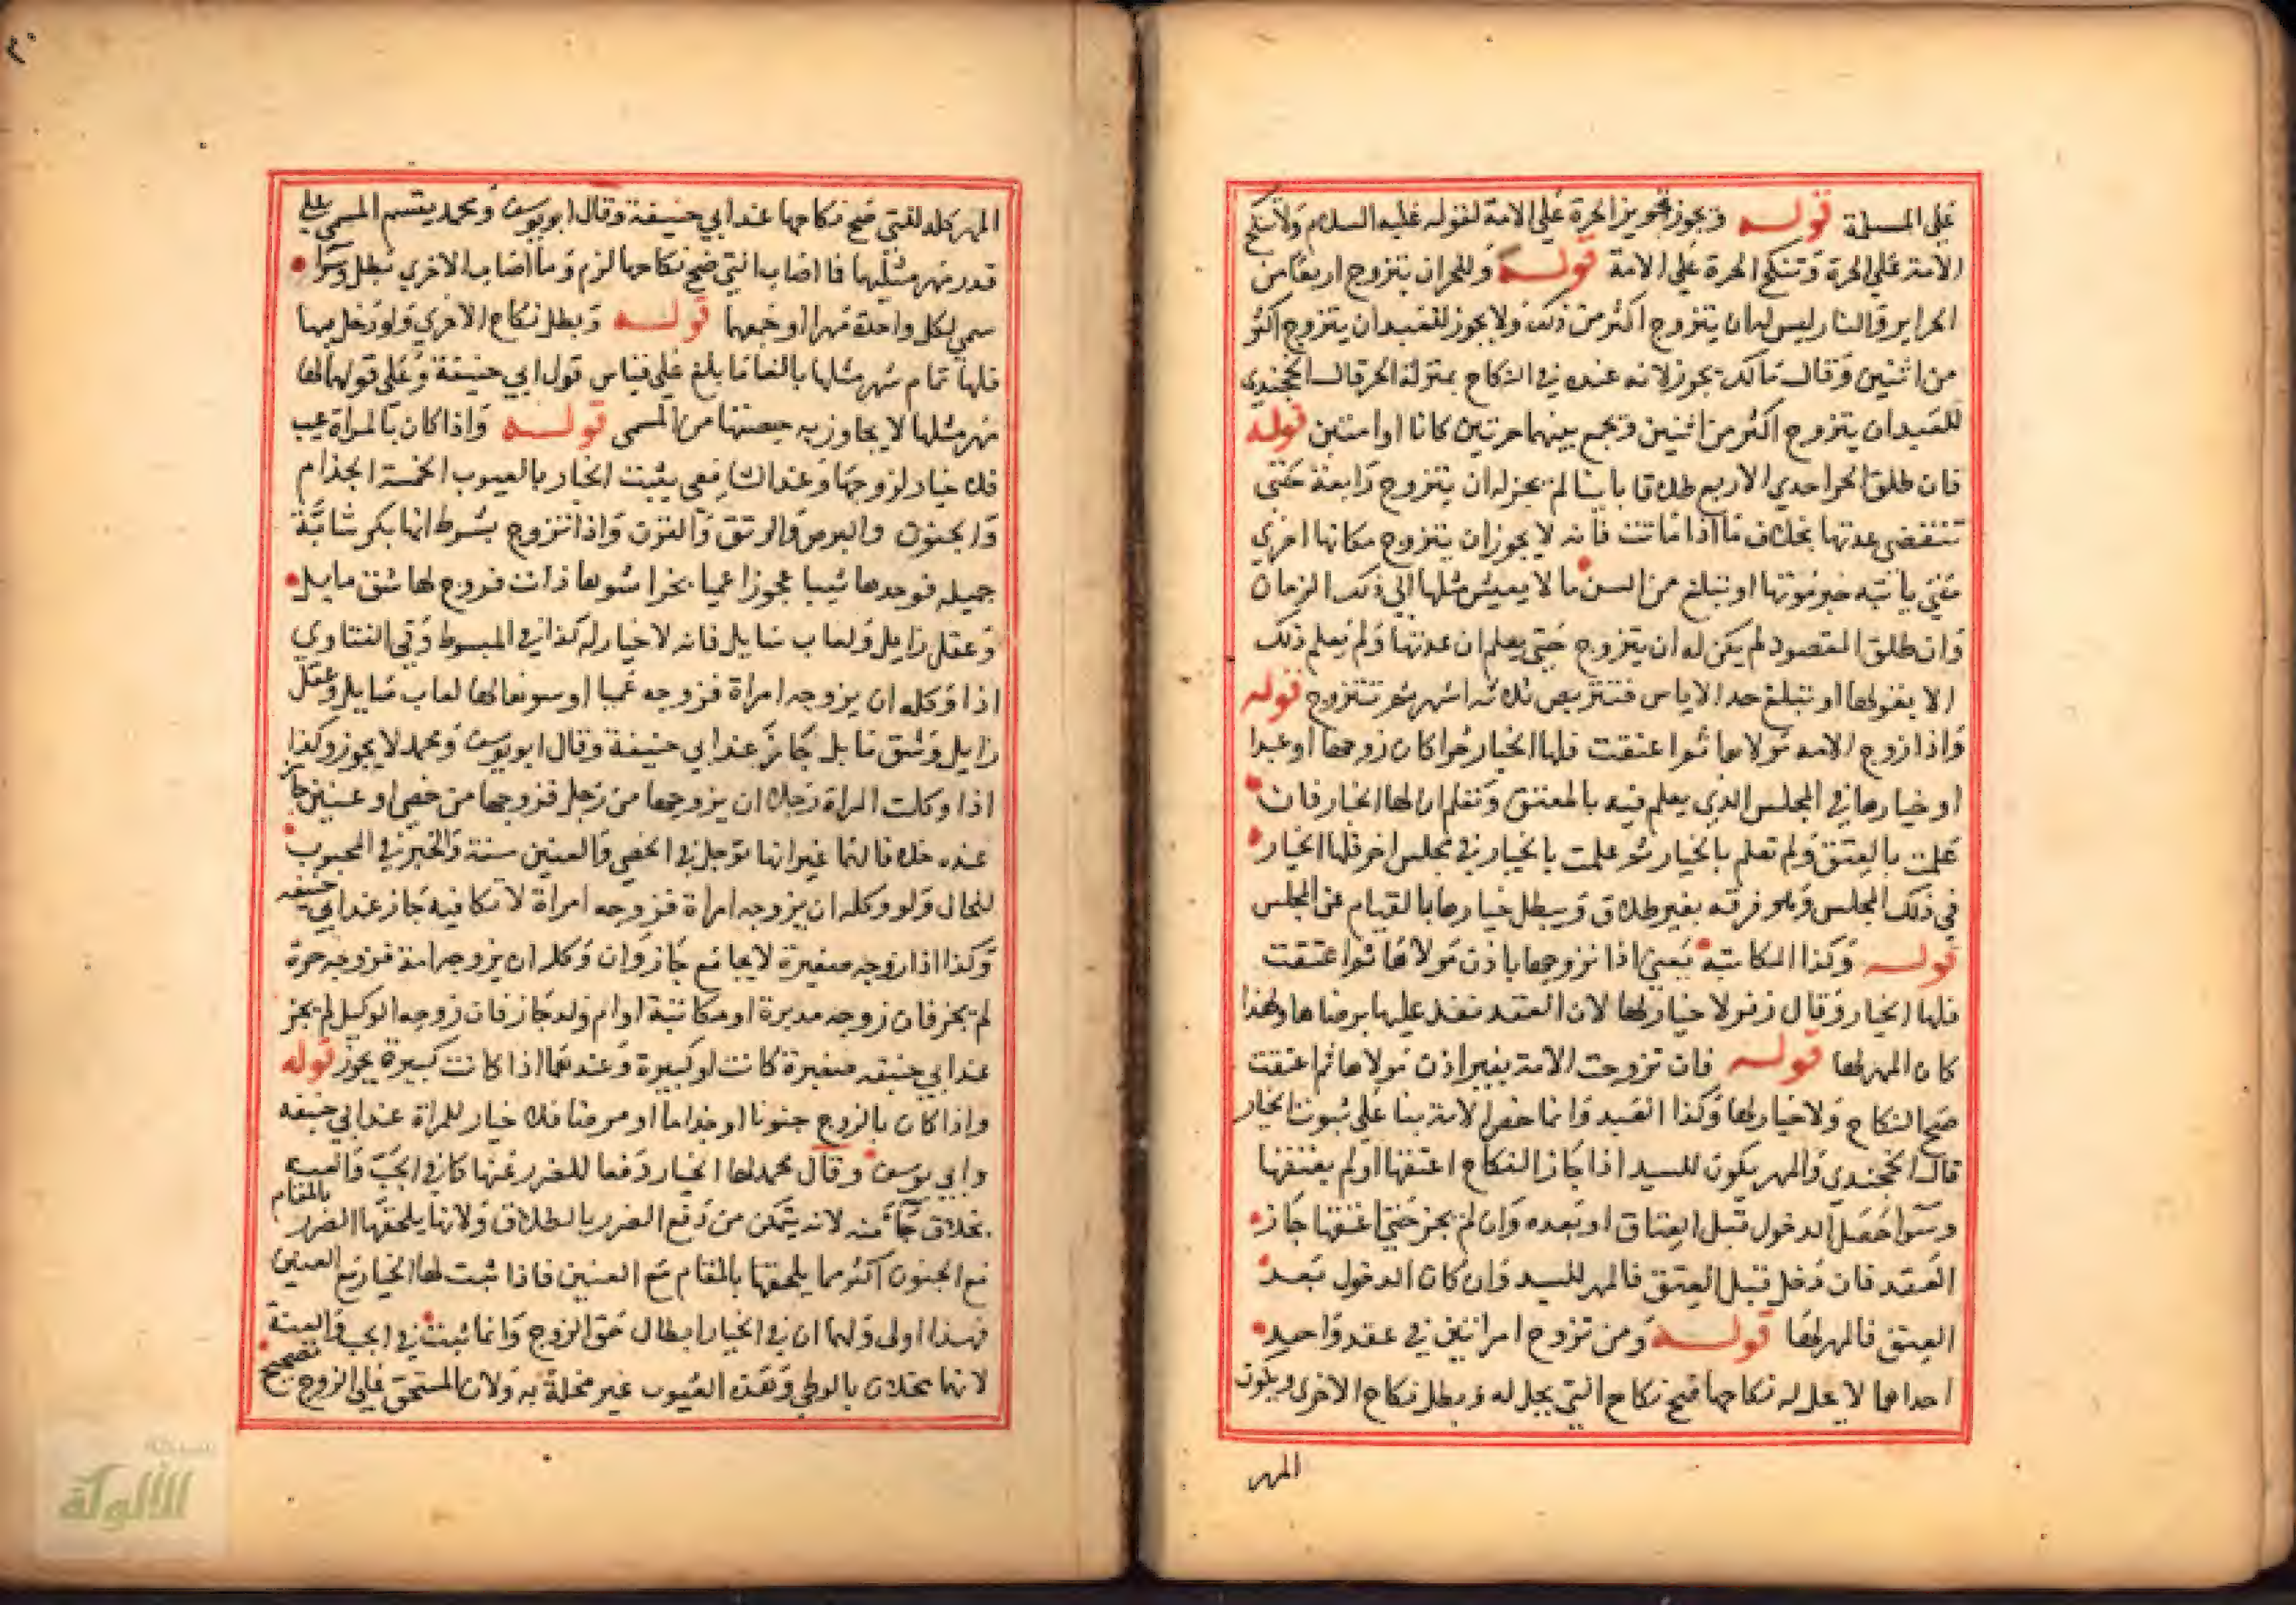 على المسلمة قوله ويجوز تجويز الحرة على الامة لقوله عليه السلام ولا تنكح
الامة على الحرة وتنكح الحرة على الامة قوله وللحر ان يتزوج اربعا من
الحراير والنسا وليس له ان يتزوج اكثر من ذلك ولا يجوز للعبد ان يتزوج اكثر
من اثنين وقال مالك يجوز لانه عنده في النكاح بمنزلة الحر قال الخجندي
للعبد ان يتزوج اكثر من اثنين ويجمع بينهما حرتين كانا او امتين قوله
فان طلق الحر احدي الاربع طلاقا باينا لم يجز له ان يتزوج رابعة حتى
تنقضي عدتها بخلاف ما اذا ماتت فانه لا يجوز ان يتزوج مكانها اخري
متي ياتيه خبر موتها او تبلغ من السن ما لا يعيش مثلها الي ذلك الزمان
وان طلق المقصود لم يكن له ان يتزوج حتى يعلم ان عدتها ولم يعلم ذلك
الا بقولها او تبلغ حد الاياس فتتربص ثلاثة اشهر ثم تتزوج قوله
واذا زوج الامة مولاها ثم اعتقت فلها الخيار حرا كان زوجها او عبدا
او خيارها في المجلس الذي يعلم فيه بالمعتق وتعلم ان لها الخيار فان
علمت بالعتق ولم تعلم بالخيار ثم علمت بالخيار في مجلس اخر فلها الخيار
في ذلك المجلس وهو فرقه بغير طلاق ويبطل خيارها بالقيام عن المجلس
قوله وكذا المكاتبة يعني اذا تزوجها باذن مولاها ثم اعتقت
فلها الخيار وقال زفر لا خيار لها لان العقد نفذ عليها برضاها ولهذا
كان المهر لها قوله فان تزوجت الامة بغير اذن مولاها ثم اعتقت
صح النكاح ولا خيار لها وكذا العبد وانما خص الامة بنا على ثبوت الخيار
قال الخجندي والمهر يكون للسيد اذا جاز النكاح اعتقها او لم يعتقها
وسوا حصل الدخول قبل العتاق او بعده وان لم يجز حتى اعتقها جاز
العقد فان دخل قبل العتق فالمهر للسيد وان كان الدخول بعد
العتق فالمهر لها قوله ومن تزوج امراتين في عقد واحد
احداهما لا يحل له نكاحها صح نكاح التي يحل له وبطل نكاح الاخري ويكون
المهر
المهر كله للتي صح نكاحها عند ابي حنيفة وقال ابو يوسف ومحمد يقسم المسمي على
قدر مهر مثليهما فما اصاب التي صح نكاحها لزم وما اصاب الاخري بطل وسوا
سمي لكل واحدة مهرا او جمعهما قوله وبطل نكاح الاخري ولو دخل بها
فلها تمام مهر مثلها بالغا ما بلغ على قياس قول ابي حنيفة وعلى قولهما لها
مهر مثلها لا يجاوز به حصتها من المسمى قوله واذا كان بالمراة عيب
فلا خيار لزوجها وعند الشافعي يثبت الخيار بالعيوب الخمسة الجذام
والجنون والبرص والرتق والقرن واذا تزوج بشرط انها بكر شابة
جميله فوجدها ثيبا عجوزا عميا بخرا شوها ذات قروح لها شق مايل
وعقل زايل ولعاب سايل فانه لا خيار له كذا في المبسوط وفي الفتاوي
اذا وكله ان يزوجه امراة فزوجه عميا او لها لعاب سايل وعقل
زايل وشق مايل جاز عند ابي حنيفة وقال ابو يوسف ومحمد لا يجوز وكذا
اذا وكلت المراة رجلا ان يزوجها من رجل فزوجها من خصي او عنين جاز
عنده خلافا لهما غير انها توجل في الخصي والعنين سنة وتخير في المجبوب
للحال ولو وكله ان يزوجه امراة فزوجه امراة لا تكافيه جاز عند ابي حنيفه
وكذا اذا زوجه صغيرة لا يجامع جاز وان وكله ان يزوجه امة فزوجه حرة
لم يجز فان زوجه مدبرة او مكاتبة او ام ولد جاز فان زوجه الوكيل لم يجز
عند ابي حنيفه صغيرة كانت او كبيرة وعندهما اذا كانت كبيرة يجوز قوله
واذا كان بالزوج جنونا او جذاما او برصا فلا خيار للمراة عند ابي حنيفه
وابي يوسف وقال محمد لها الخيار دفعا للضرر عنها كما في الجب والعنة
بخلاف جانبه لانه يتمكن من دفع الضرر بالطلاق ولانها يلحقها الضرر بالمقام
مع الجنون اكثر مما يلحقها بالمقام مع العنين فاذا ثبت لها الخيار مع العنين
فهذا اولى ولهما ان في الخيار ابطال حق الزوج وانما ثبت في الجب والعنة
لانهما يخلان بالوطي وهذه العيوب غير مخلة به ولان المستحق على الزوج تصحيح
الألوكة